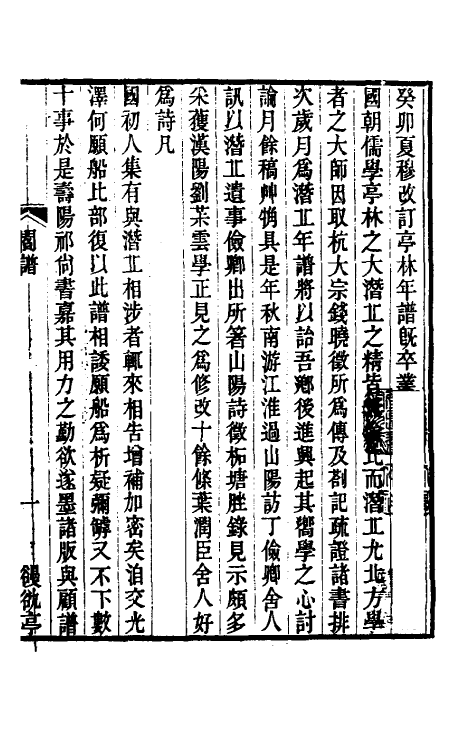 癸卯夏穆改訂亭林年譜旣卒業
國朝儒學亭林之大潛丠之精皆
比而潛丠尤北方學
者之大師因取杭大宗錢曉徵所爲傳及劄記疏證諸書排
次歲月爲潛丠年譜將以詒吾鄕後進興起其嚮學之心討
論月餘稿艸觕具是年秋南游江淮過山陽訪丁儉卿舍人
訊以潛丠遺事儉卿出所箸山陽詩徵柘塘脞錄見示頗多
采獲漢陽劉茮雲學正見之爲修改十餘條葉潤臣舍人好
爲詩凡
國初人集有與潛丠相涉者輒來相告增補加密矣洎交光
澤何願船比部復以此譜相諉願船爲析疑彌罅又不下數
十事於是壽陽祁尙書嘉其用力之勤欲遂墨諸版與顧譜
閻譜
一
䜱䜪亭